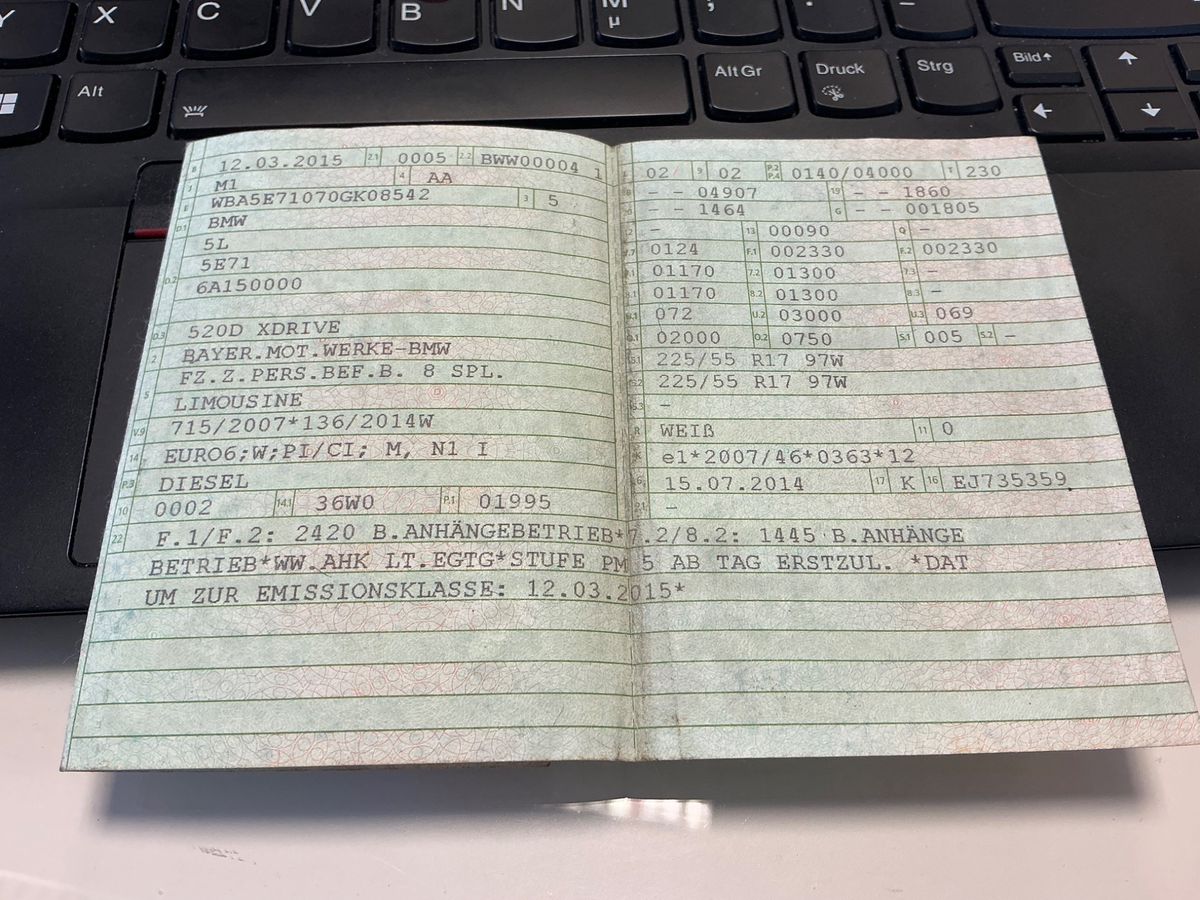 Y X C V B N M µ ; : . –
Alt Alt Gr Druck Strg Bild
B 12.03.2015 2.1 0005 2.2 BWW00004 1
J M1 4 AA
E WBA5E71070GK08542 3 5
D.1 BMW
5L
5E71
D.2 6A150000
D.3 520D XDRIVE
2 BAYER.MOT.WERKE-BMW
FZ.Z.PERS.BEF.B. 8 SPL.
5 LIMOUSINE
V.9 715/2007*136/2014W
14 EURO6;W;PI/CI; M, N1 I
P.3 DIESEL
10 0002 14.1 36W0 P.1 01995
02 9 02 P.2 P.4 0140/04000 T 230
– – 04907 19 – – 1860
– – 1464 G – – 001805
– 13 00090 Q –
V.7 0124 F.1 002330 F.2 002330
7.1 01170 7.2 01300 7.3 –
8.1 01170 8.2 01300 8.3 –
U.1 072 U.2 03000 U.3 069
O.1 02000 O.2 0750 S.1 005 S.2 –
15.1 225/55 R17 97W
15.2 225/55 R17 97W
15.3 –
R WEIß 11 0
K e1*2007/46*0363*12
6 15.07.2014 17 K 16 EJ735359
21 –
22 F.1/F.2: 2420 B.ANHÄNGEBETRIEB*7.2/8.2: 1445 B.ANHÄNGE
BETRIEB*WW.AHK LT.EGTG*STUFE PM 5 AB TAG ERSTZUL. *DAT
UM ZUR EMISSIONSKLASSE: 12.03.2015*